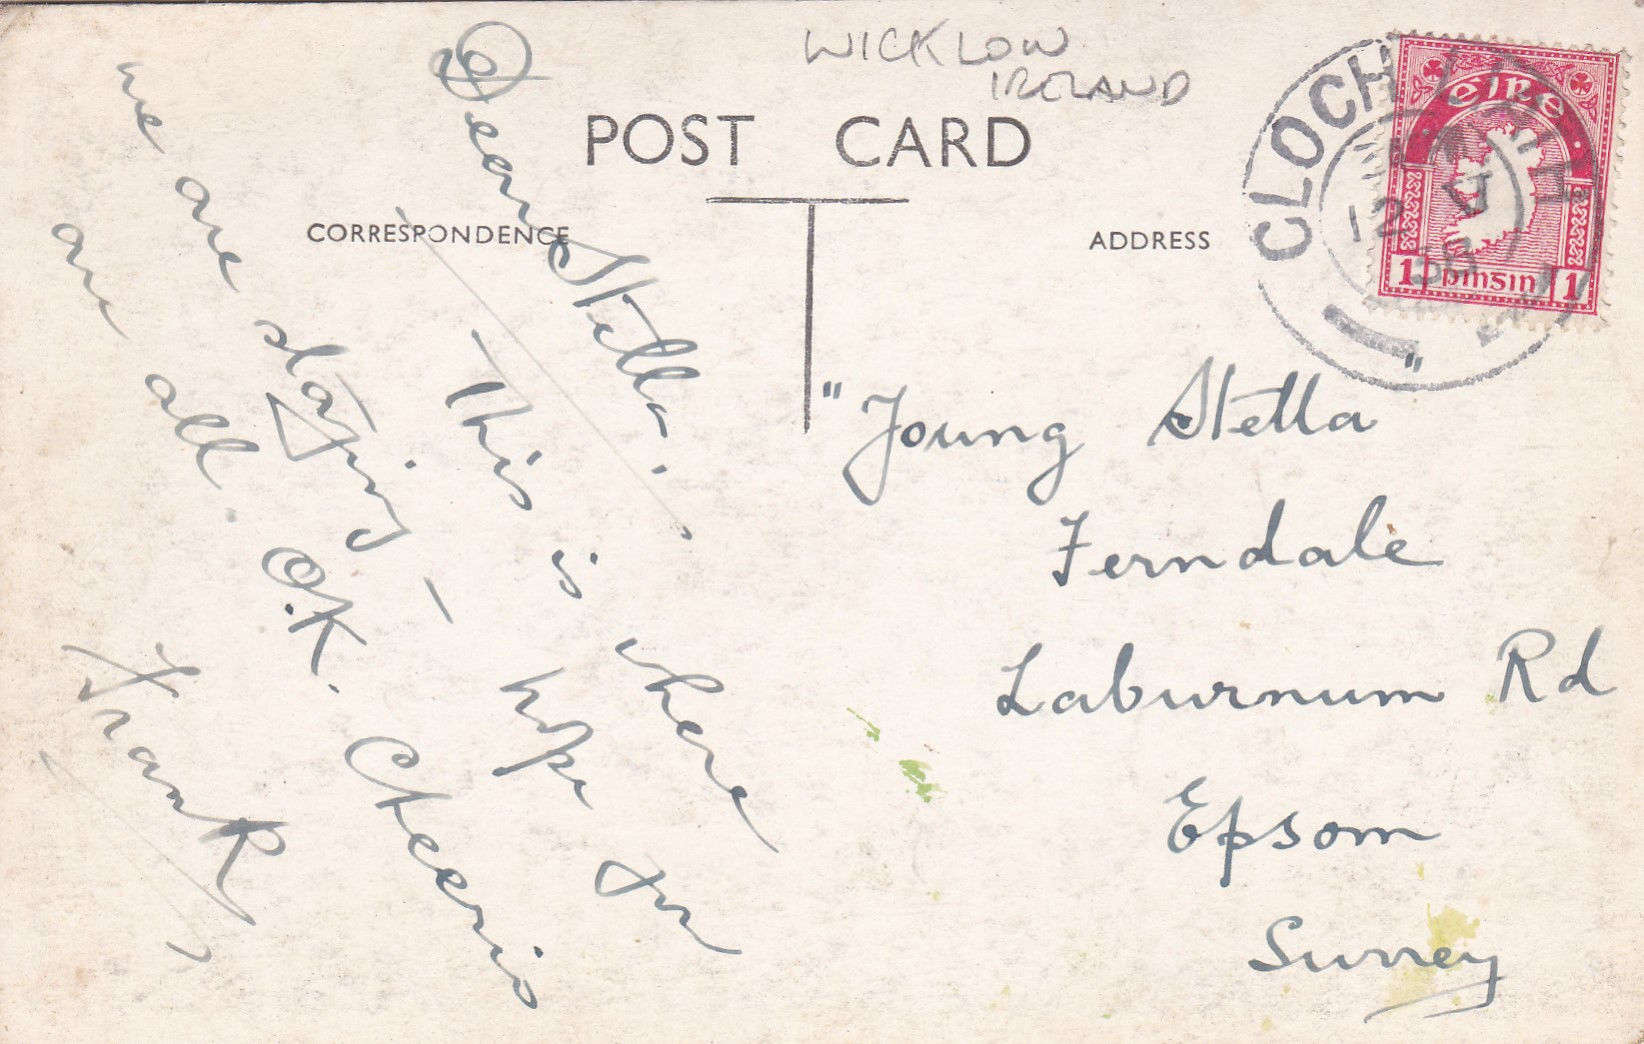 WICKLOW
IRELAND
POST CARD
CORRESPONDENCE
ADDRESS
CLOCH
12
éire
1 pinsin 1
Dear Stella,
This is where
we are staying – hope you
are all O.K. Cheerio
Frank
"Young Stella"
Ferndale
Laburnum Rd
Epsom
Surrey